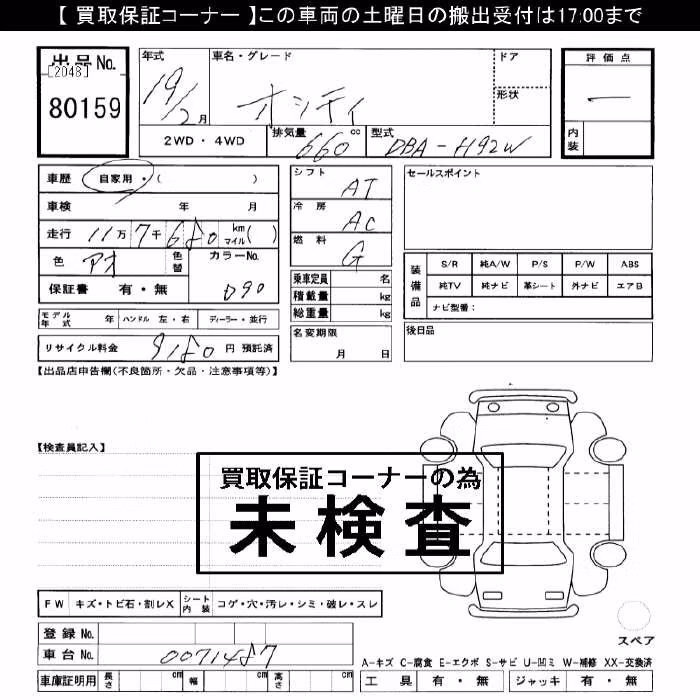 【 買取保証コーナー 】この車両の土曜日の搬出受付は17:00まで
出品No.
[2048]
80159
年式
19/2月
車名・グレード
オッティ
ドア
形状
評価点
―
内装
2WD・4WD
排気量 660 cc
型式 DBA-H92W
車歴 自家用・( )
車検 年 月
走行 11万7千680 km マイル( )
色 アオ 色替
カラーNo. D90
保証書 有・無
モデル年式 年 ハンドル 左・右 ディーラー・並行
リサイクル料金 9180 円 預託済
シフト AT
冷房 AC
燃料 G
乗車定員 名
積載量 kg
総重量 kg
名変期限 月 日
セールスポイント
装備品
S/R 純A/W P/S P/W ABS
純TV 純ナビ 革シート 外ナビ エアB
ナビ型番：
後日品
【出品店申告欄(不良箇所・欠品・注意事項等)】
【検査員記入】
買取保証コーナーの為
未検査
FW キズ・トビ石・割レX シート内装 コゲ・穴・汚レ・シミ・破レ・スレ
登録No.
車台No. 0071487
車庫証明用 長さ cm 幅 cm 高さ cm
スペア
A-キズ C-腐食 E-エクボ S-サビ U-凹ミ W-補修 XX-交換済
工具 有・無 ジャッキ 有・無